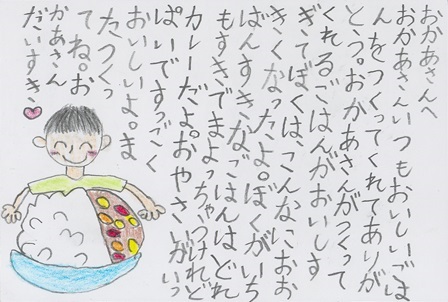 おかあさんへ
おかあさんいつもおいしいごは
んをつくってくれてありが
とう。おかあさんがつくって
くれるごはんがおいしす
ぎてぼくは、こんなにおお
きくなったよ。ぼくがいち
ばんすきなごはんはどれ
もすきでまよっちゃうけれど
カレーだよ。おやさいがいっ
ぱいですっごく
おいしいよ。ま
たつくっ
てね。お
かあさん
だいすき